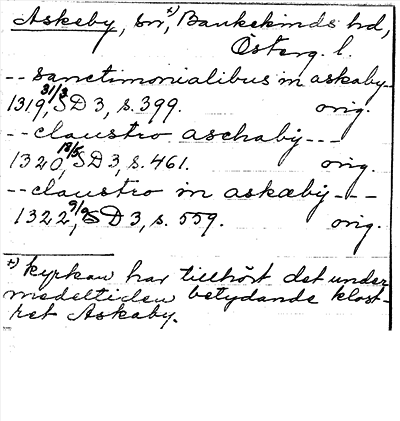 Askeby, sn,*) Bankekinds hd,
Österg. l.
-- sanctimonialibus in askaby--
1319 31/3, SD 3, s. 399. orig.
-- claustro aschabý ---
1320 18/5, SD 3, s. 461. orig.
-- claustro in askæbý ---
1322 9/9, SD 3, s. 559. orig.
*) Kyrkan har tillhört det under
medeltiden betydande klost-
ret Askaby.